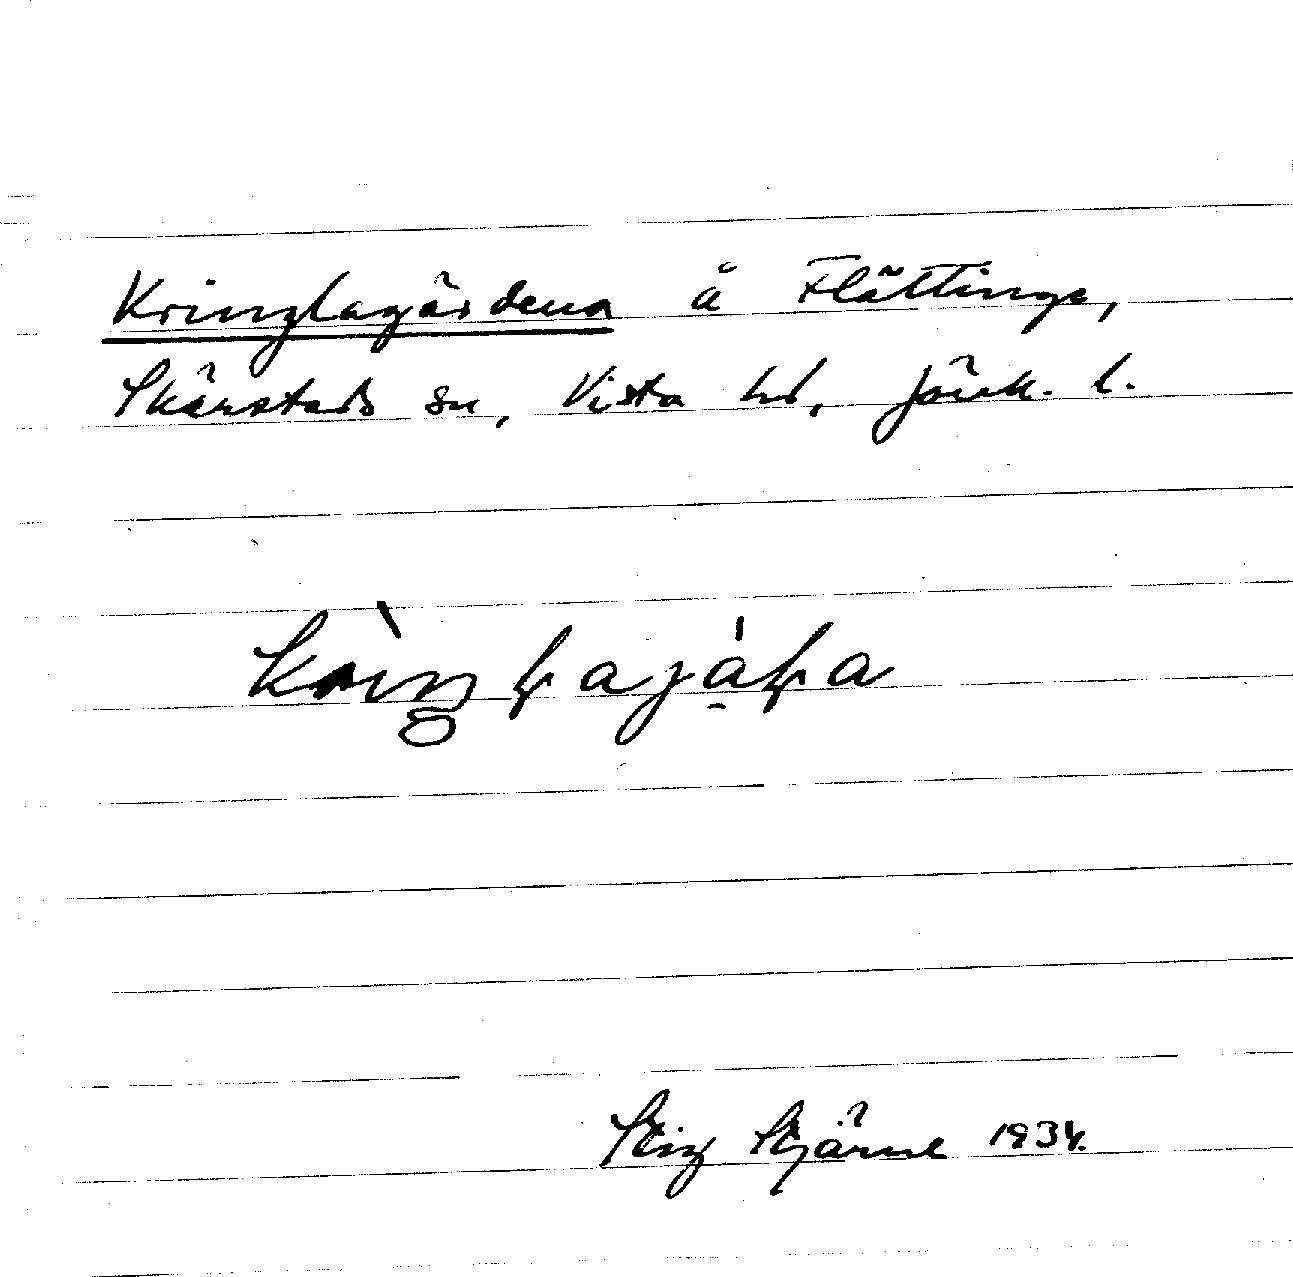 Kringlagärdena å Flättinge,
Skärstads sn, Vista hd, Jönk. l.
Stig Stjärne 1934.